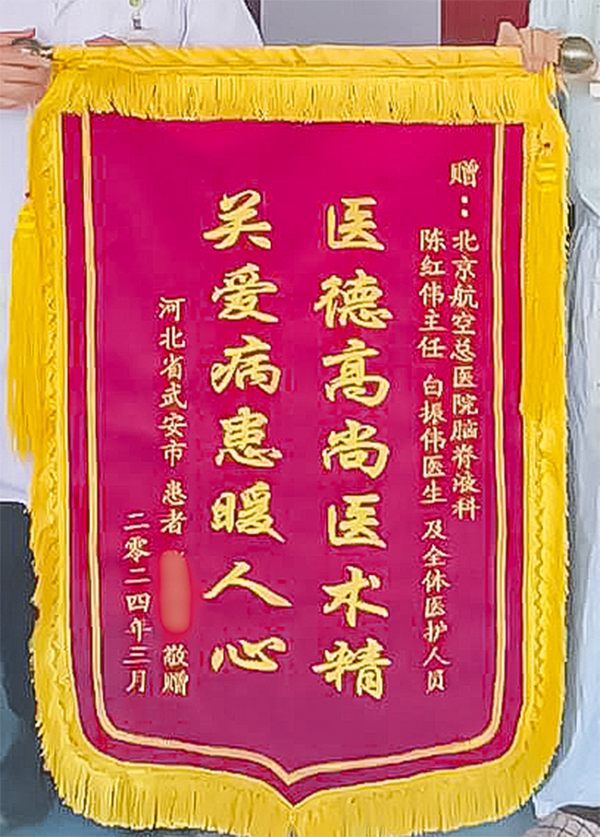 赠：北京航空总医院脑脊液科
陈红伟主任 白振伟医生 及全体医护人员
医德高尚医术精
关爱病患暖人心
河北省武安市 患者 敬赠
二零二四年三月